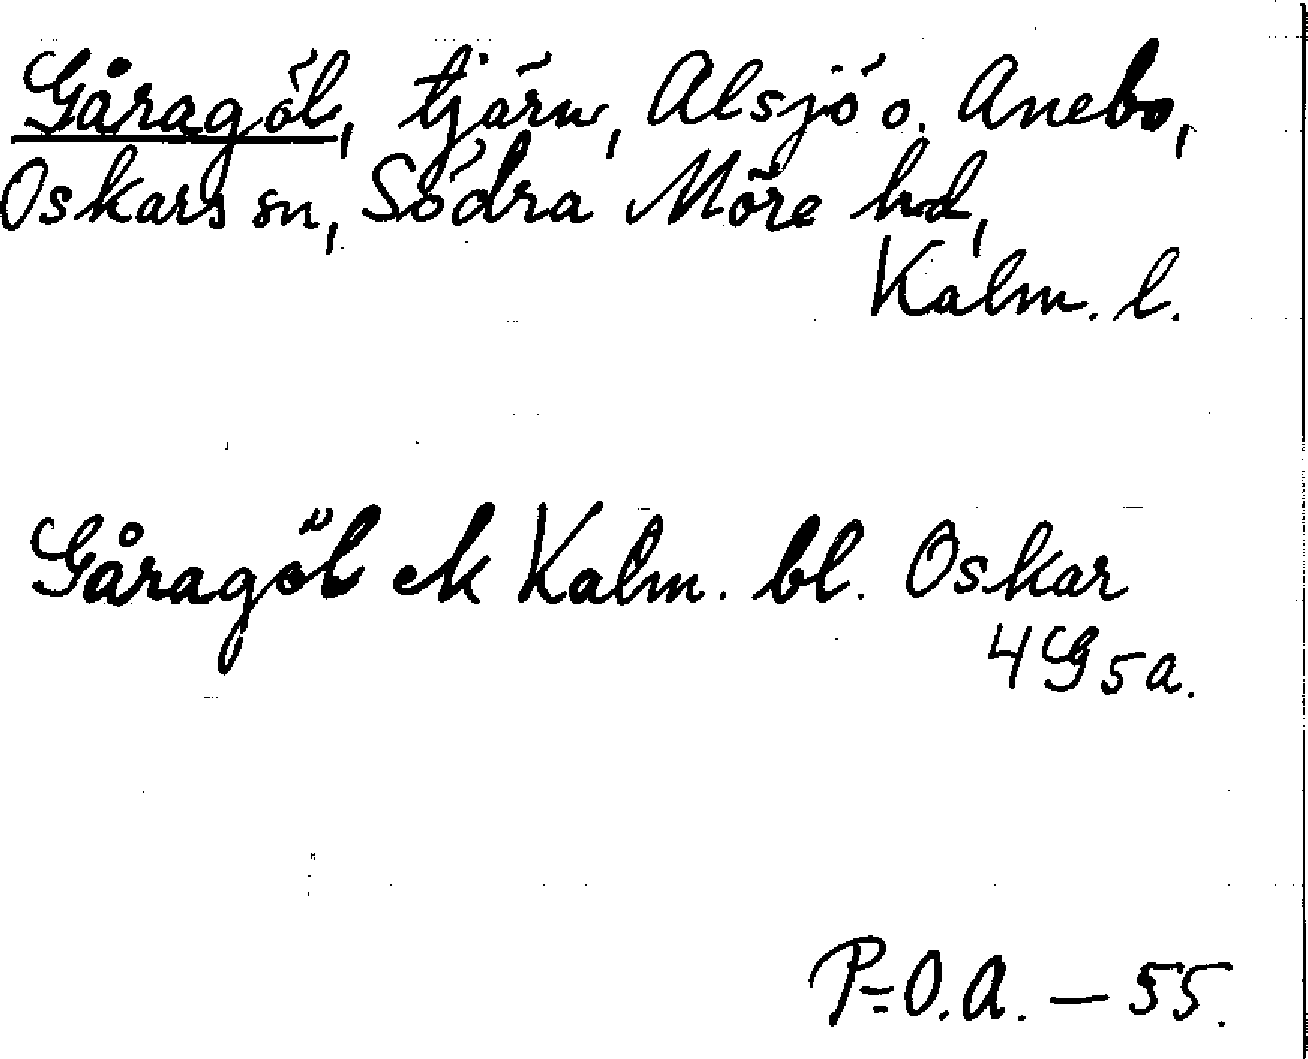 Gåragöl, tjärn, Alsjö o. Anebo,
Oskars sn, Södra Möre hd,
Kalm. l.
Gåragöl ek Kalm. bl. Oskar
4G5a.
P-O.A. — 55.